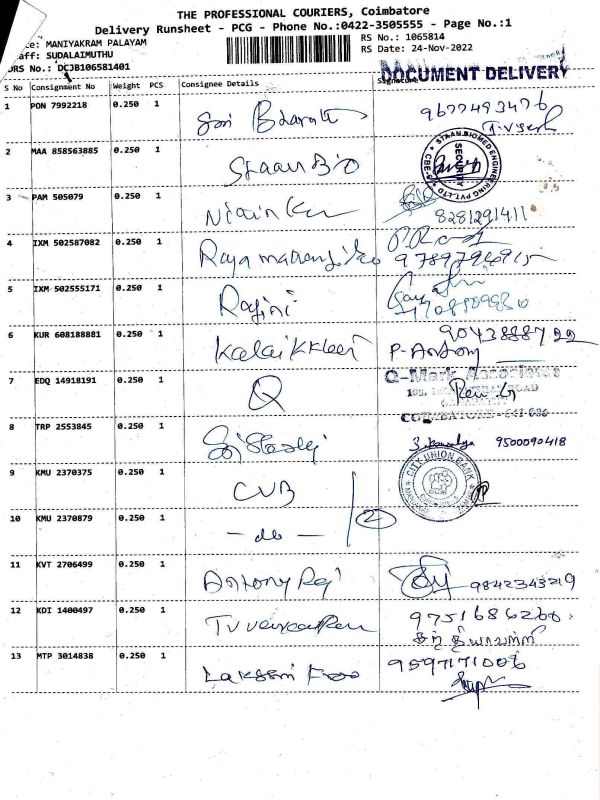 THE PROFESSIONAL COURIERS, Coimbatore
Delivery Runsheet - PCG - Phone No.:0422-3505555 - Page No.:1
ce: MANIYAKRAM PALAYAM
RS No.: 1065814
aff: SUDALAIMUTHU
RS Date: 24-Nov-2022
DRS No.: DCJB106581401
DOCUMENT DELIVERY
S No Consignment No Weight PCS Consignee Details Signature
1 PON 7992218 0.250 1 Sri Bharath 9677493476
2 MAA 858563885 0.250 1 Staan Bio
STAAN BIOMED ENGINEERING PVT. LTD
SECURITY
CBE-
3 PAM 505079 0.250 1 8281291411
4 IXM 502587082 0.250 1
5 IXM 502555171 0.250 1 Ragini
6 KUR 608188881 0.250 1 P. Antony
7 EDQ 14918191 0.250 1 Q
Q-Mark Associates
ROAD
COIMBATORE
8 TRP 2553845 0.250 1 9500090418
9 KMU 2370375 0.250 1 CUB
CITY UNION BANK
10 KMU 2370879 0.250 1 - do - 2
11 KVT 2706499 0.250 1 Antony Raj 9842343219
12 KDI 1400497 0.250 1 9751686260
13 MTP 3014838 0.250 1 9597171006